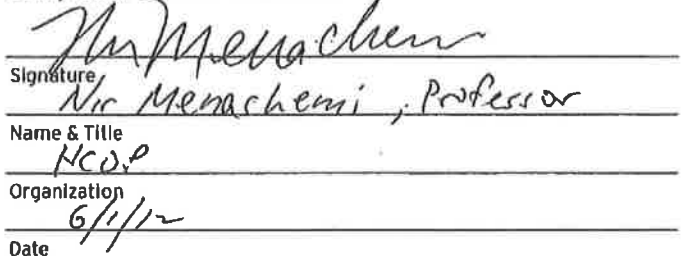 Nir Menachemi
Signature
Nir Menachemi, Professor
Name & Title
HCOP
Organization
6/1/12
Date